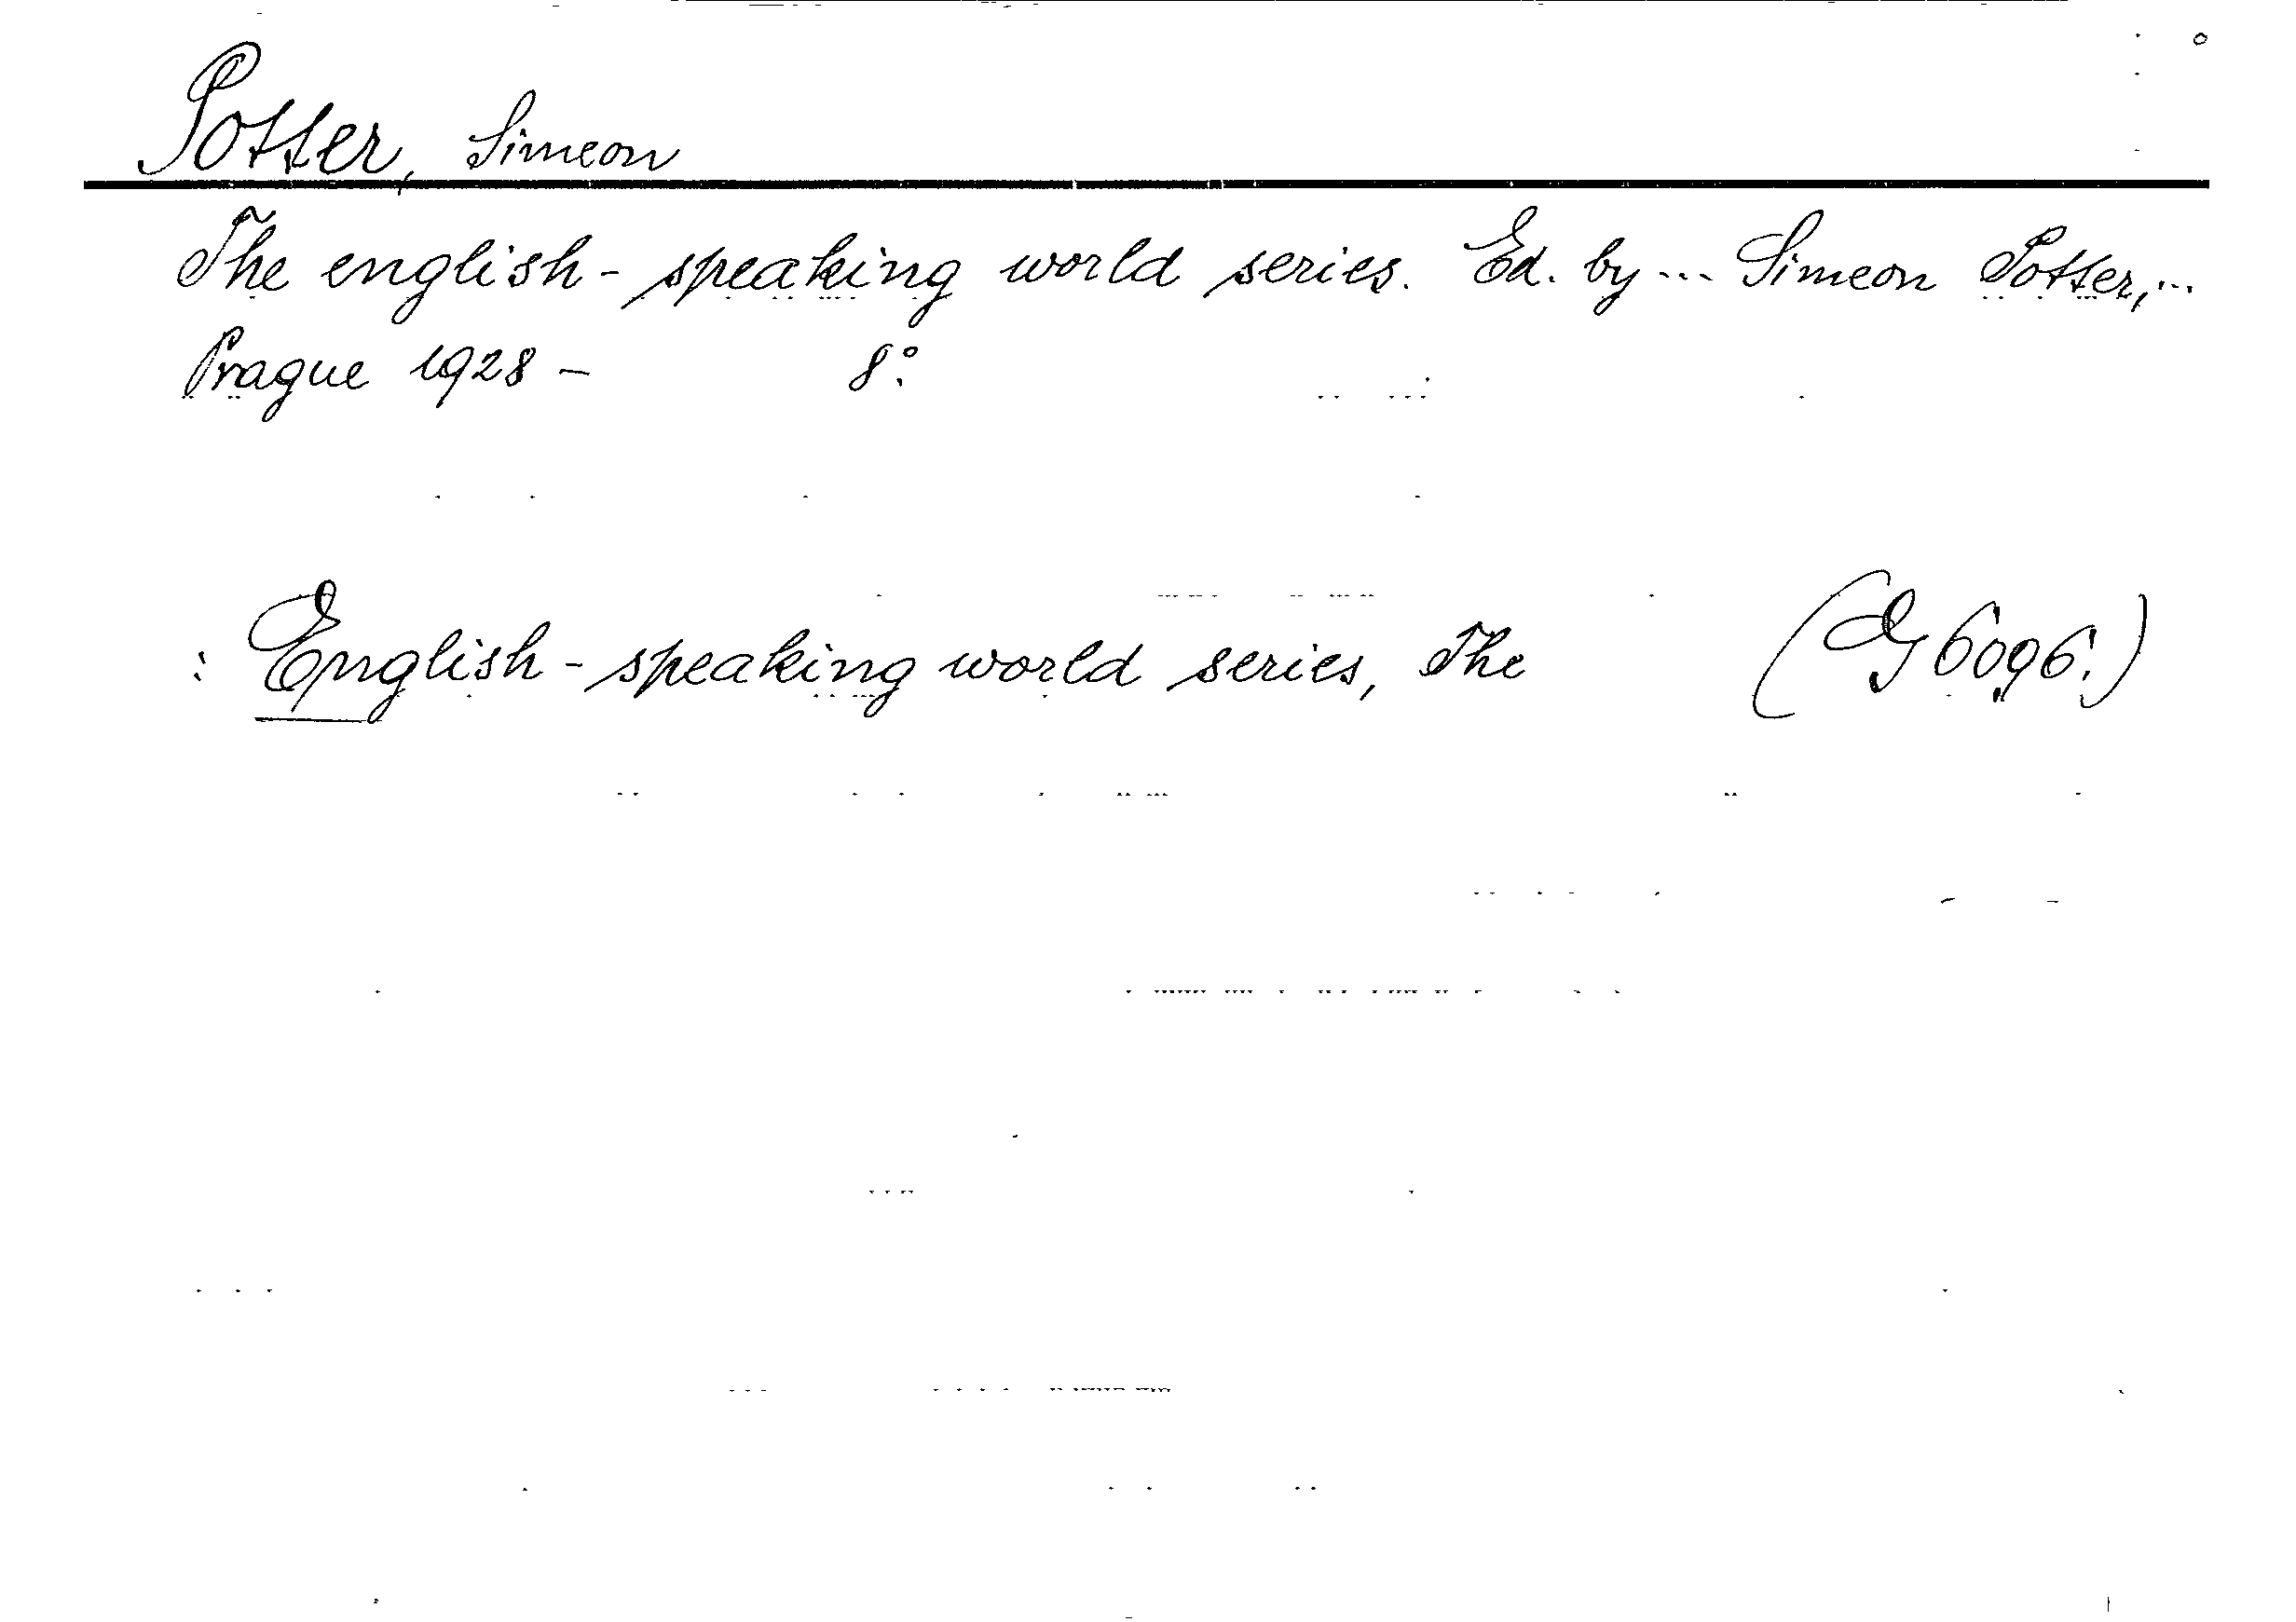 Potter, Simeon
The english-speaking world series. Ed. by ... Simeon Potter, ...
Prague 1928 – 8°.
: English-speaking world series, The (G 6096.)